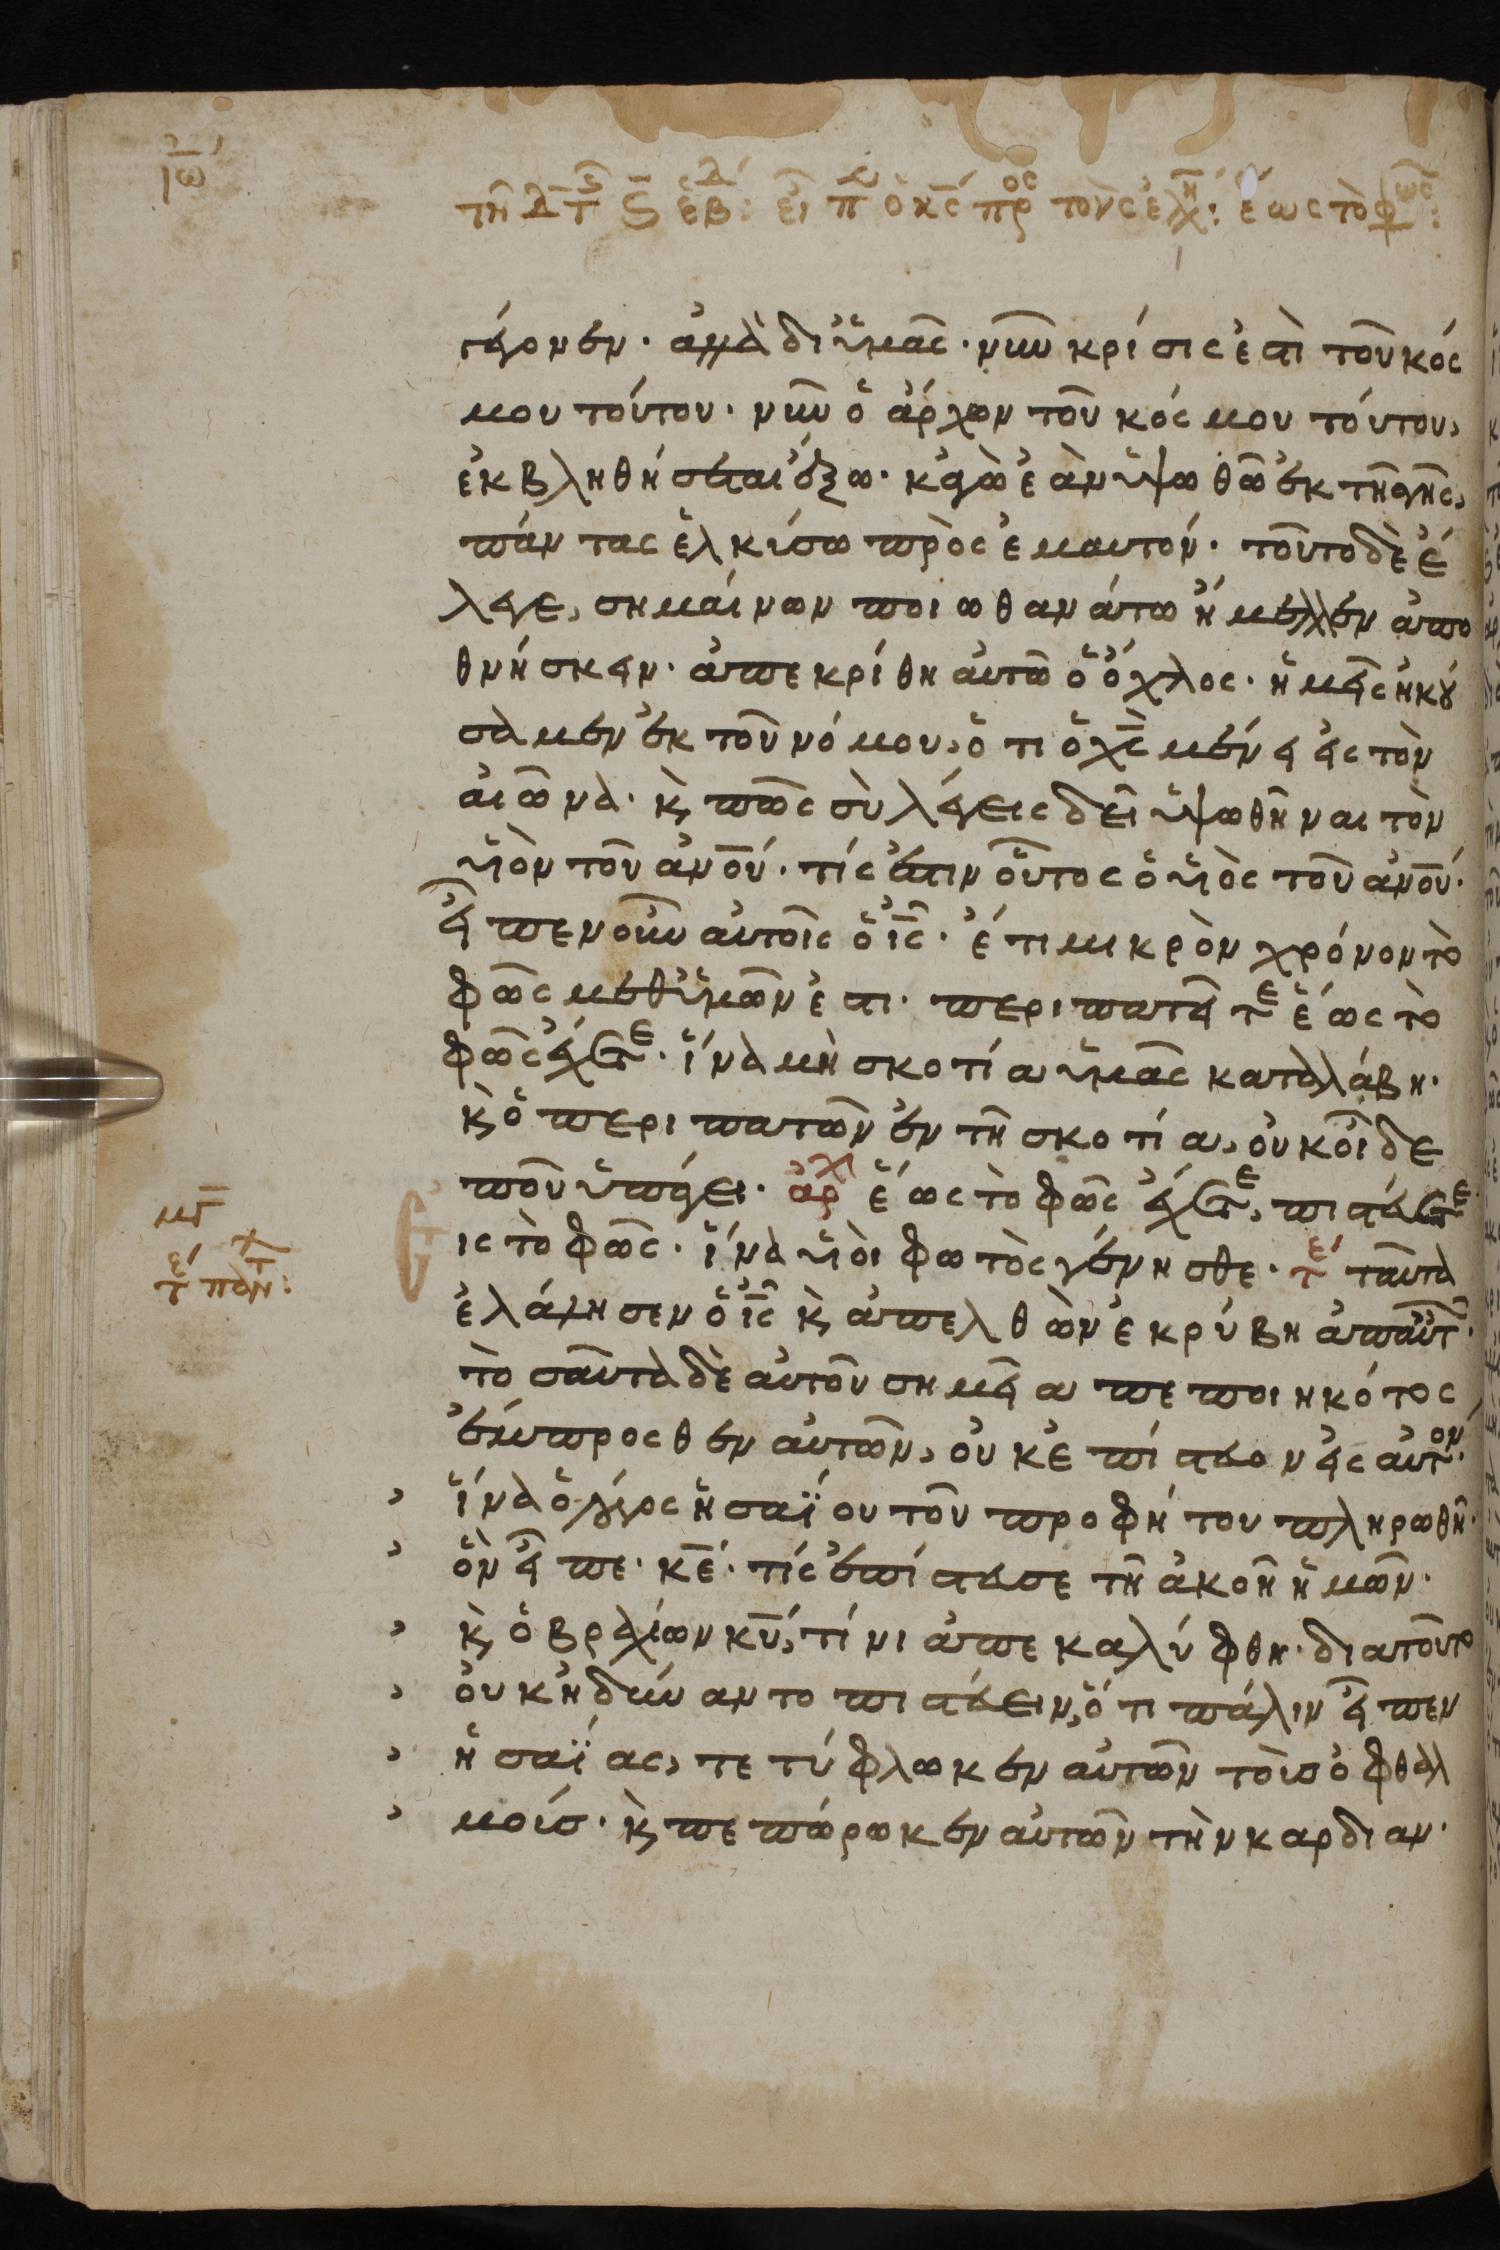 ιω
τῇ Δ τ ς ἑβ: εἶπ ὁ κς προς τοὺς ἐλ: ἕως τὸ φως:
γέγονεν· ἀλλὰ δι ὑμᾶς· νῦν κρίσις ἐστὶ τοῦ κόσ
μου τούτου· νῦν ὁ ἄρχων τοῦ κόσμου τούτου,
ἐκβληθήσεται ἔξω· κἀγὼ ἐὰν ὑψωθῶ ἐκ τῆς γῆς,
πάντας ἑλκύσω πρὸς ἐμαυτόν· τοῦτο δὲ ἔ
λεγε, σημαίνων ποίω θανάτω ἤμελλεν ἀπο
θνήσκειν· ἀπεκρίθη αὐτῶ ὁ ὄχλος· ἡμεῖς ἠκού
σαμεν ἐκ τοῦ νόμου, ὅτι ὁ χς μένει εἰς τὸν
αἰῶνα· κὶ πῶς σὺ λέγεις δεῖ ὑψωθῆναι τὸν
υἱὸν τοῦ ανου· τίς ἐστιν οὗτος ὁ υἱὸς τοῦ ανου·
εἶπεν οὖν αὐτοῖς ὁ ις· ἔτι μικρὸν χρόνον τὸ
φῶς μεθ ὑμῶν ἐστι· περιπατεῖτε ἕως τὸ
φῶς ἔχετε· ἵνα μὴ σκοτία ὑμᾶς καταλάβη·
κὶ ὁ περιπατῶν ἐν τῆ σκοτία, οὐκ οἶδε
ποῦ ὑπάγει· ἀρχ ἕως τὸ φῶς ἔχετε, πιστεύετε
εις τὸ φῶς· ἵνα υἱοὶ φωτὸς γένησθε· τε ταῦτα
μγ
τε τ παν:
ἐλάλησεν ὁ ις κὶ ἀπελθὼν ἐκρύβη ἀπ αὐτ·
τοσαῦτα δὲ αὐτοῦ σημεῖα πεποιηκότος
ἔμπροσθεν αὐτῶν, οὐκ ἐπίστευον εἰς αὐτον·
ἵνα ὁ λόγος ἠσαΐου τοῦ προφήτου πληρωθῆ·
ὃν εἶπε· κε· τίς ἐπίστευσε τῆ ἀκοῆ ἡμῶν·
κὶ ὁ βραχίων κυ, τίνι ἀπεκαλύφθη· διατοῦτο
οὐκ ἠδύναντο πιστεύειν, ὅτι πάλιν εἶπεν
ἠσαΐας, τετύφλωκεν αὐτῶν τοὺσ ὀφθαλ
μούσ· κὶ πεπώρωκεν αὐτῶν τὴν καρδιαν·